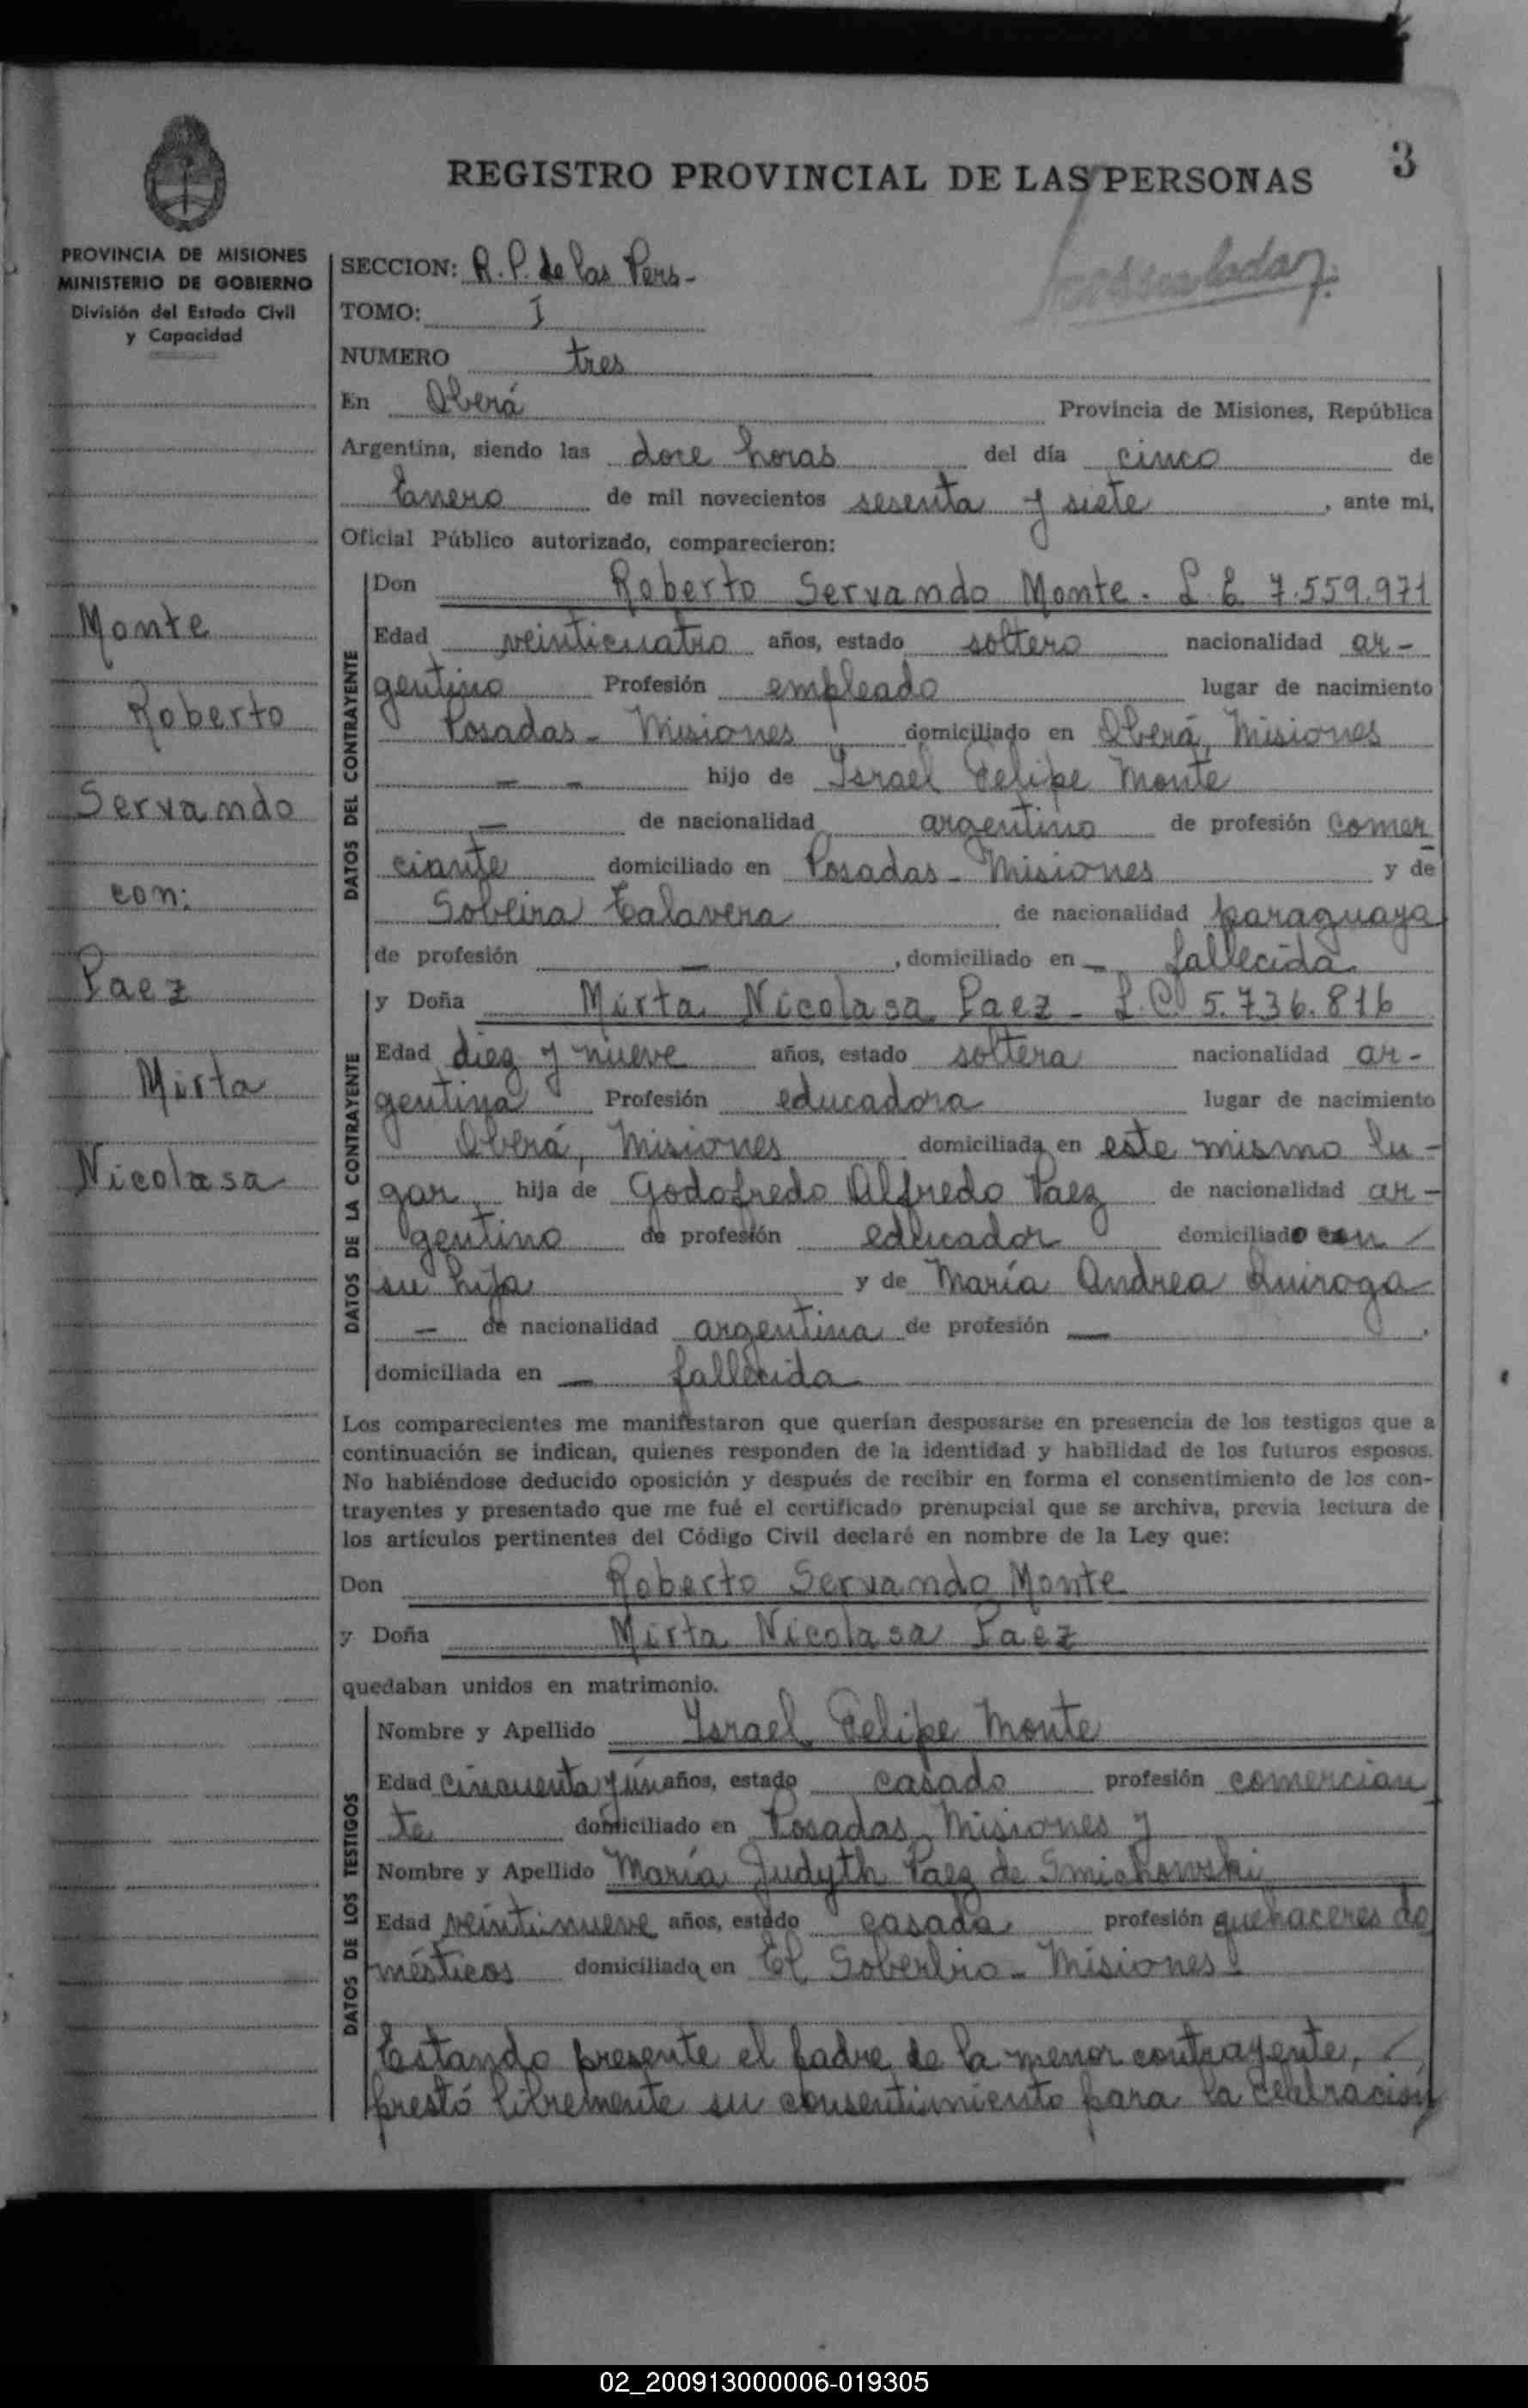 3
REGISTRO PROVINCIAL DE LAS PERSONAS
PROVINCIA DE MISIONES
MINISTERIO DE GOBIERNO
División del Estado Civil
y Capacidad
Monte
Roberto
Servando
con:
Paez
Mirta
Nicolasa
SECCION: R.P. de las Pers-
TOMO: I
NUMERO tres
En Oberá Provincia de Misiones, República
Argentina, siendo las doce horas del día cinco de
Enero de mil novecientos sesenta y siete, ante mi,
Oficial Público autorizado, comparecieron:
DATOS DEL CONTRAYENTE
Don Roberto Servando Monte. L.E 7.559.971
Edad veinticuatro años, estado soltero nacionalidad ar-
gentino Profesión empleado lugar de nacimiento
Posadas - Misiones domiciliado en Oberá, Misiones
- - hijo de Israel Felipe Monte
- de nacionalidad argentino de profesión comer
ciante domiciliado en Posadas - Misiones y de
Sobeira Talavera de nacionalidad paraguaya
de profesión -, domiciliado en - fallecida
DATOS DE LA CONTRAYENTE
y Doña Mirta Nicolasa Paez - L.C. 5.736.816
Edad diez y nueve años, estado soltera nacionalidad ar-
gentina Profesión educadora lugar de nacimiento
Oberá, Misiones domiciliada en este mismo lu-
gar, hija de Godofredo Alfredo Paez de nacionalidad ar-
gentino de profesión educador domiciliado con /
su hija y de María Andrea Quiroga
- de nacionalidad argentina de profesión -,
domiciliada en - fallecida
Los comparecientes me manifestaron que querían desposarse en presencia de los testigos que a
continuación se indican, quienes responden de la identidad y habilidad de los futuros esposos.
No habiéndose deducido oposición y después de recibir en forma el consentimiento de los con-
trayentes y presentado que me fué el certificado prenupcial que se archiva, previa lectura de
los artículos pertinentes del Código Civil declaré en nombre de la Ley que:
Don Roberto Servando Monte
y Doña Mirta Nicolasa Paez
quedaban unidos en matrimonio.
DATOS DE LOS TESTIGOS
Nombre y Apellido Israel Felipe Monte
Edad cincuenta y un años, estado casado profesión comercian
te domiciliado en Posadas, Misiones y
Nombre y Apellido María Judyth Paez de Smichowski
Edad veintinueve años, estado casada profesión quehaceres do
mésticos domiciliada en El Soberbio - Misiones
Estando presente el padre de la menor contrayente, /
prestó libremente su consentimiento para la celebración
02_200913000006-019305